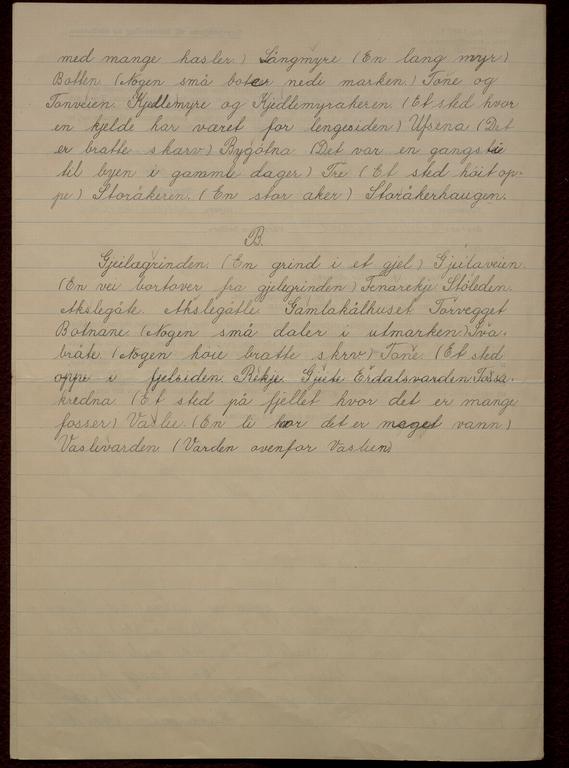 med mange hasler.) Långmyre (En lang myr)
Botten. (Nogen små boter nedi marken.) Tone og
Tonveien. Kjedlemyre og Kjedlemyrakeren. (Et sted hvor
en kjelde har været for lengesiden) Ufsena (Det
er bratte skarv) Bygótna (Det var en gangstie
til byen i gammle dager) Tre (Et sted höit op-
pe) Storåkeren. (En stor aker) Storåkerhaugen.
B.
Gjeilægrinden. (En grind i et gjel) Gjeilaveien.
(En vei bortover fra gjelegrinden) Fenarekje Stöleden.
Akslegåte. Akslegåtle. Gamlakålhuset Torvegget
Botnane (Nogen små daler i utmarken) Svå-
bråte. (Nogen höie bratte skrv) Tone. (Et sted
oppe i fjelsiden. Rekje. Gjeite Erdalsvarden. Fossa-
kredna. (Et sted på fjellet hvor det er mange
fosser) Vaslie. (En li hvor det er meget vann)
Vaslivarden. (Varden ovenfor Vaslien)